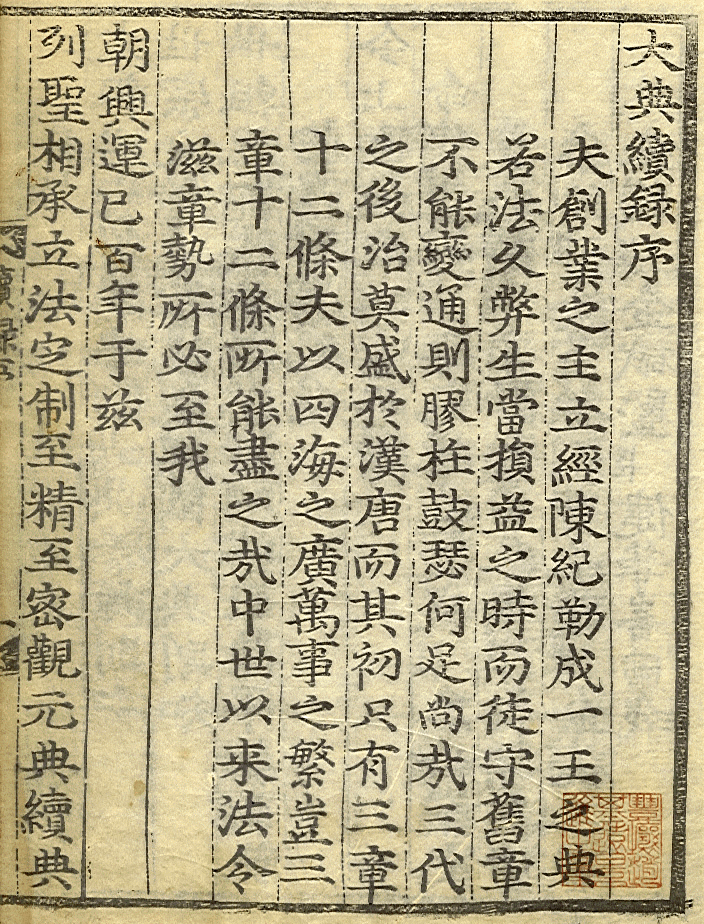 大典續録序
夫創業之主立經陳紀勒成一王之典
若法久弊生當損益之時而徒守舊章
不能變通則膠柱鼓瑟何足尚㢤三代
之後治莫盛於漢唐而其初只有三章
十二條夫以四海之廣萬事之繁豈三
章十二條所能盡之㢤中世以来法令
滋章勢所必至我
朝興運已百年于兹
列聖相承立法定制至精至密觀元典續典